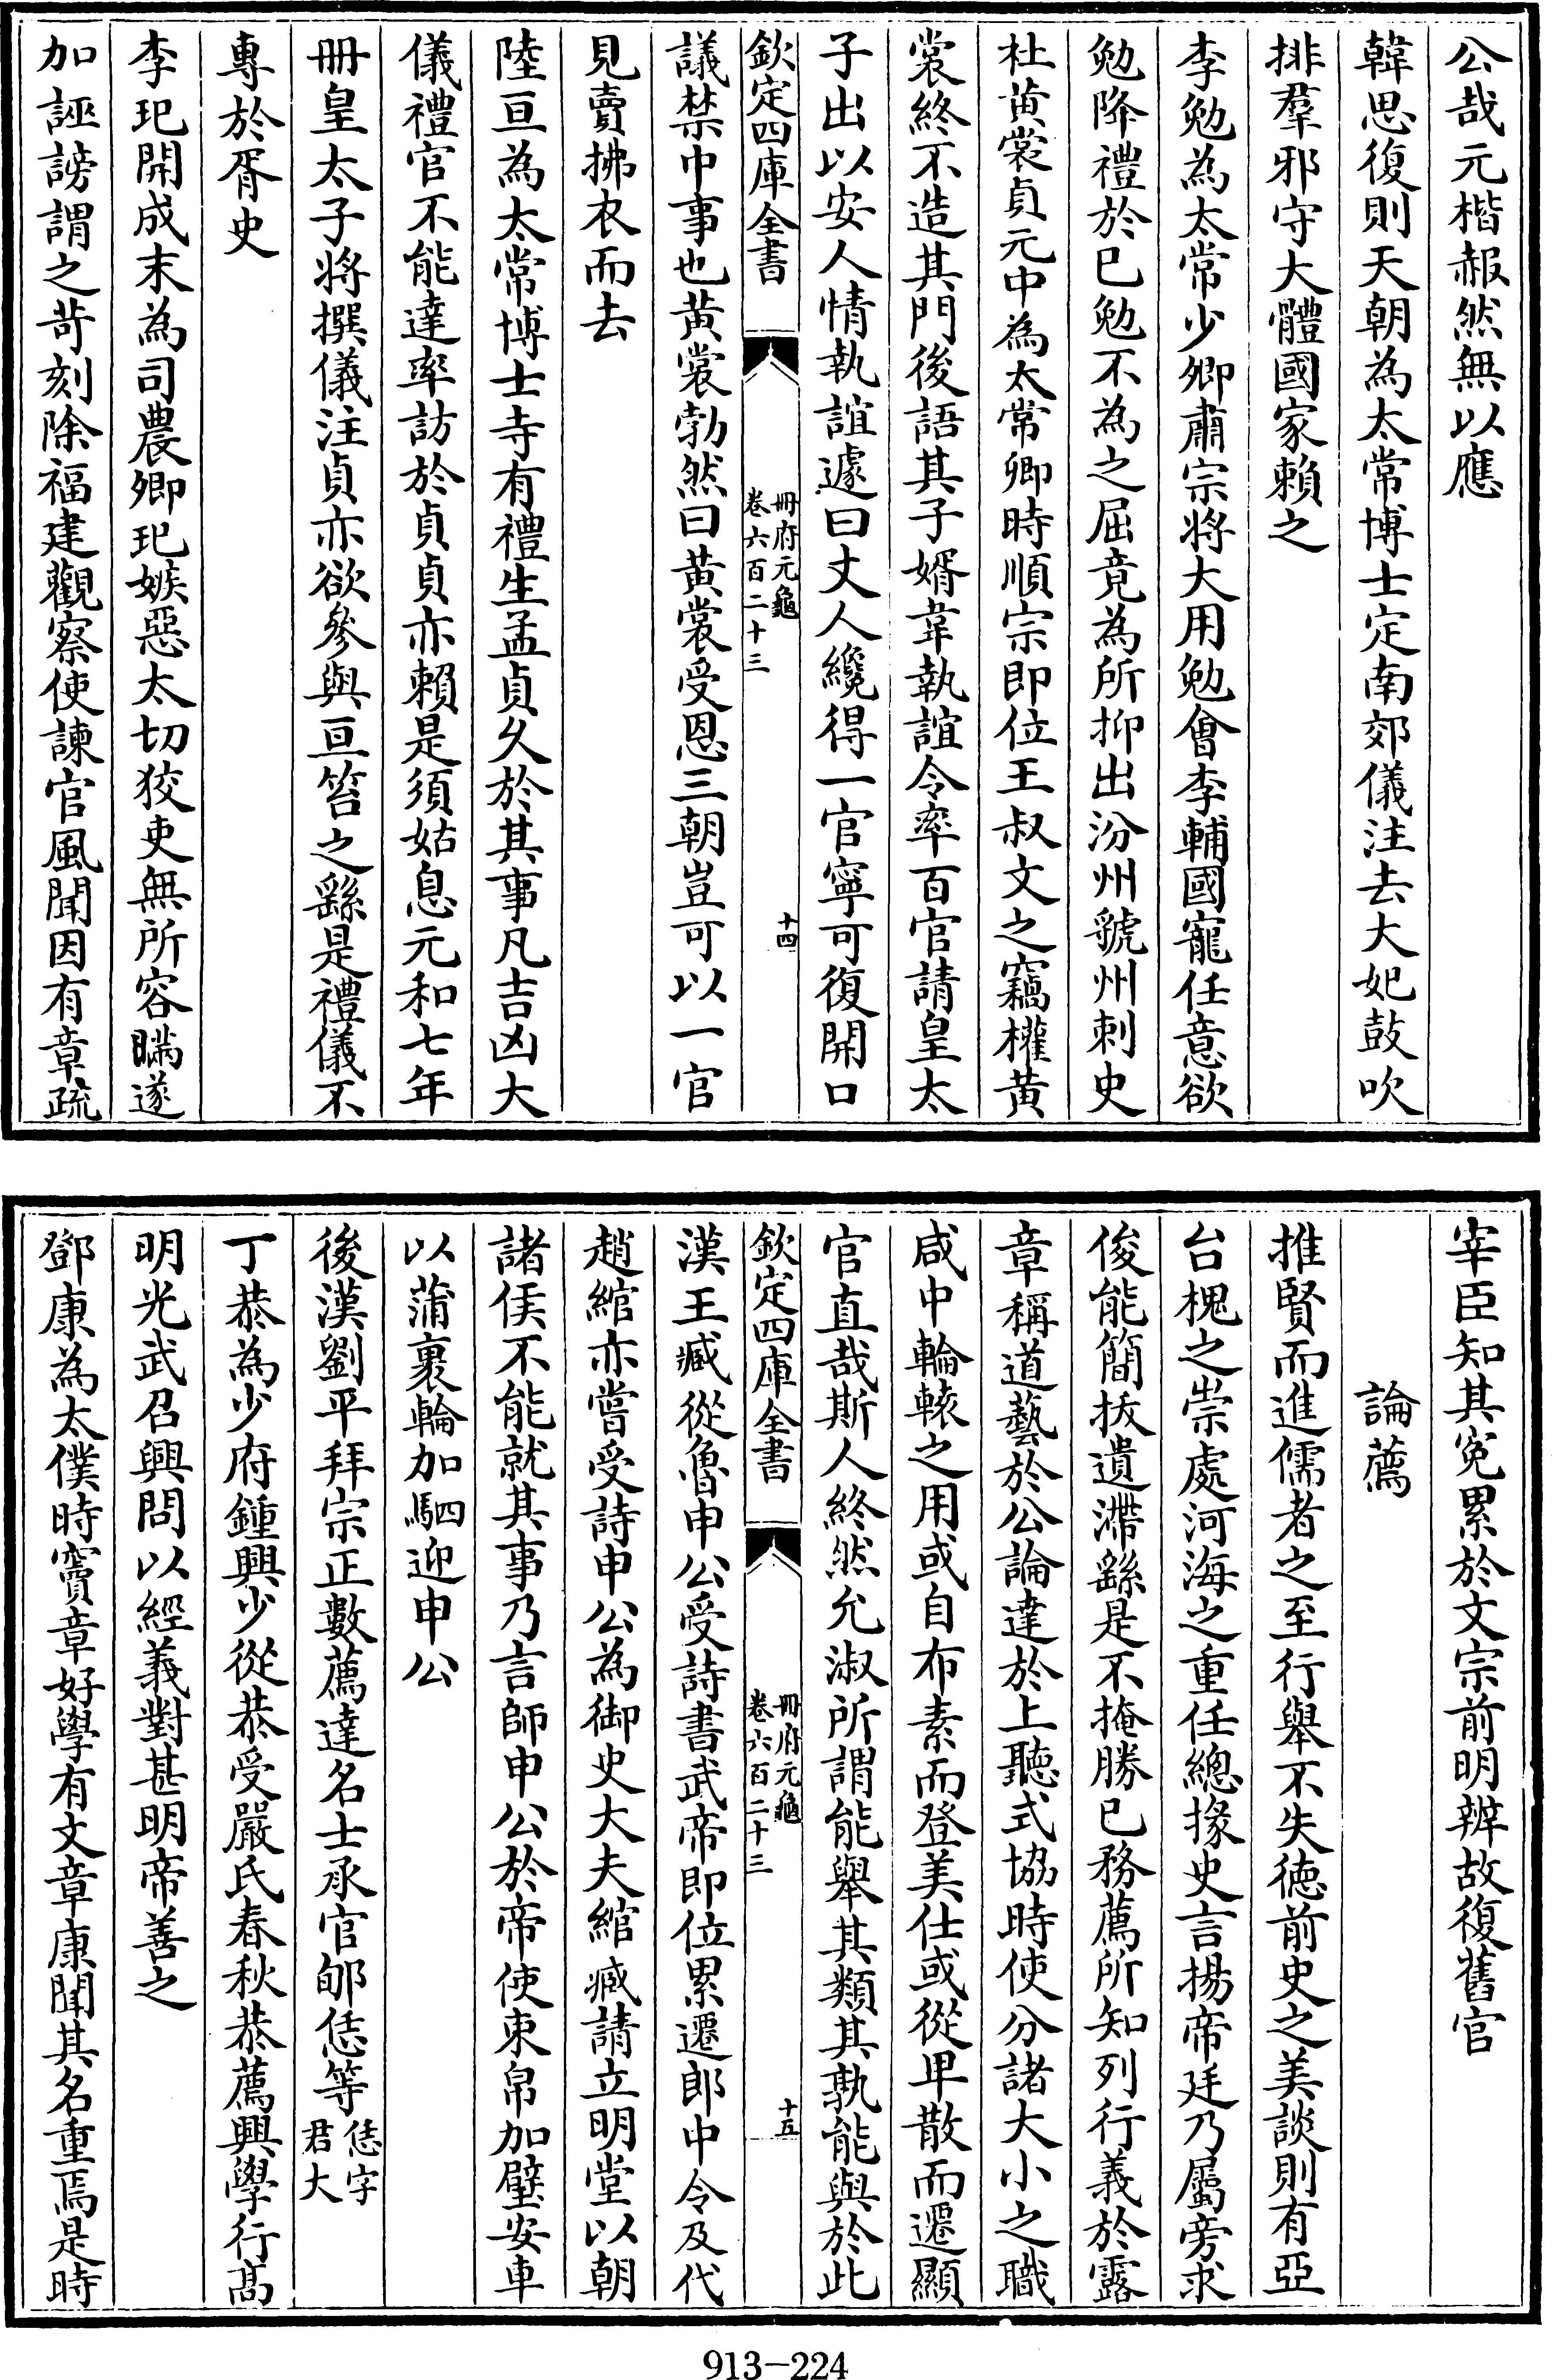 公哉元楷赧然無以應
韓思復則天朝為太常博士定南郊儀注去大妃鼓吹
排羣邪守大體國家賴之
李勉為太常少卿肅宗將大用勉會李輔國寵任意欲
勉降禮於已勉不為之屈竟為所抑出汾州虢州刺史
杜黄裳貞元中為太常卿時順宗即位王叔文之竊權黄
裳終不造其門後語其子婿韋執誼令率百官請皇太
子出以安人情執誼遽曰丈人纔得一官寧可復開口
欽定四庫全書
冊府元龜
卷六百二十三
十四
議禁中事也黄裳勃然曰黄裳受恩三朝豈可以一官
見賣拂衣而去
陸亘為太常博士寺有禮生孟貞久於其事凡吉凶大
儀禮官不能達率訪於貞貞亦賴是須姑息元和七年
冊皇太子將撰儀注貞亦欲參與亘笞之繇是禮儀不
專於胥史
李玘開成末為司農卿玘嫉惡太切狡吏無所容瞞遂
加誣謗謂之苛刻除福建觀察使諫官風聞因有章疏
宰臣知其寃累於文宗前明辨故復舊官
論薦
推賢而進儒者之至行舉不失徳前史之美談則有亞
台槐之崇處河海之重任總掾史言揚帝廷乃屬旁求
俊能簡拔遺滯繇是不掩勝已務薦所知列行義於露
章稱道藝於公論達於上聽式協時使分諸大小之職
咸中輪轅之用或自布素而登美仕或從卑散而遷顯
官直哉斯人終然允淑所謂能舉其類其孰能與於此
欽定四庫全書
冊府元龜
卷六百二十三
十五
漢王臧從魯申公受詩書武帝即位累遷郎中令及代
趙綰亦嘗受詩申公為御史大夫綰臧請立明堂以朝
諸侯不能就其事乃言師申公於帝使束帛加璧安車
以蒲裹輪加駟迎申公
後漢劉平拜宗正數薦達名士承官郇恁等恁字君大
丁恭為少府鍾興少從恭受嚴氏春秋恭薦興學行髙
明光武召興問以經義對甚明帝善之
鄧康為太僕時竇章好學有文章康聞其名重焉是時
913-224